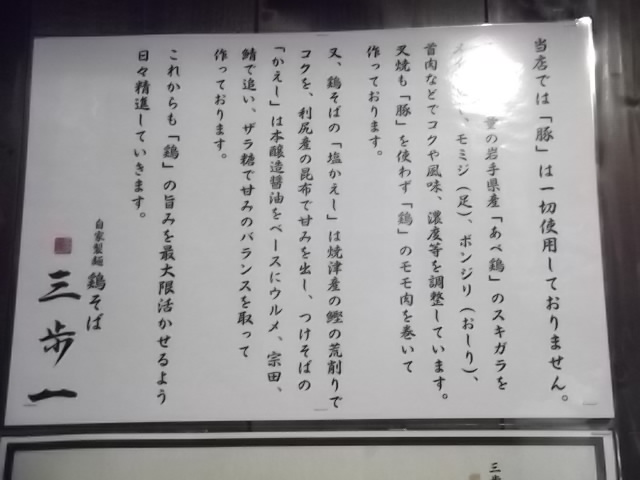 当店では「豚」は一切使用しておりません。
の岩手県産「あべ鶏」のスキガラを
モミジ（足）、ボンジリ（おしり）、
首肉などでコクや風味、濃度等を調整しています。
叉焼も「豚」を使わず「鶏」のモモ肉を巻いて
作っております。
又、鶏そばの「塩かえし」は焼津産の鰹の荒削りで
コクを、利尻産の昆布で甘みを出し、つけそばの
「かえし」は本醸造醤油をベースにウルメ、宗田、
鯖で追い、ザラ糖で甘みのバランスを取って
作っております。
これからも「鶏」の旨みを最大限活かせるよう
日々精進していきます。
自家製麺 鶏そば
三歩一
三歩